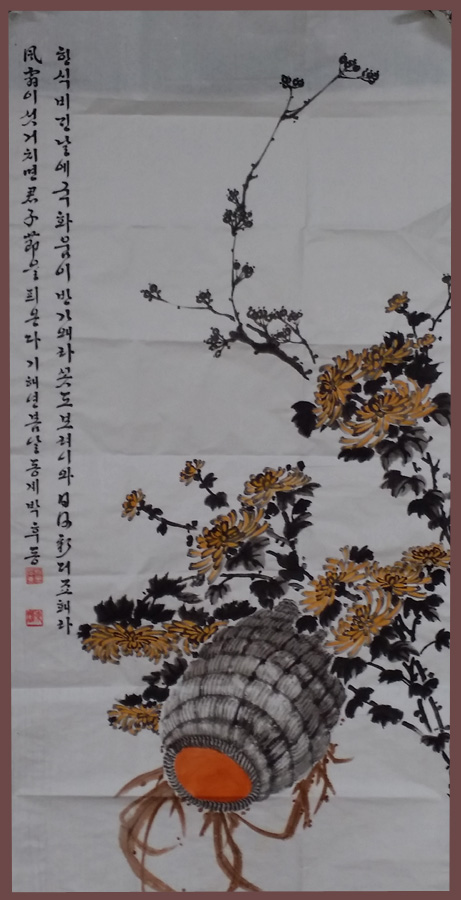 한식비긴날에국화움이반가왜라꼿도보려니와日日新더죠해라
風霜이섯거치면君子節을픠온다기해년봄날동계박후동